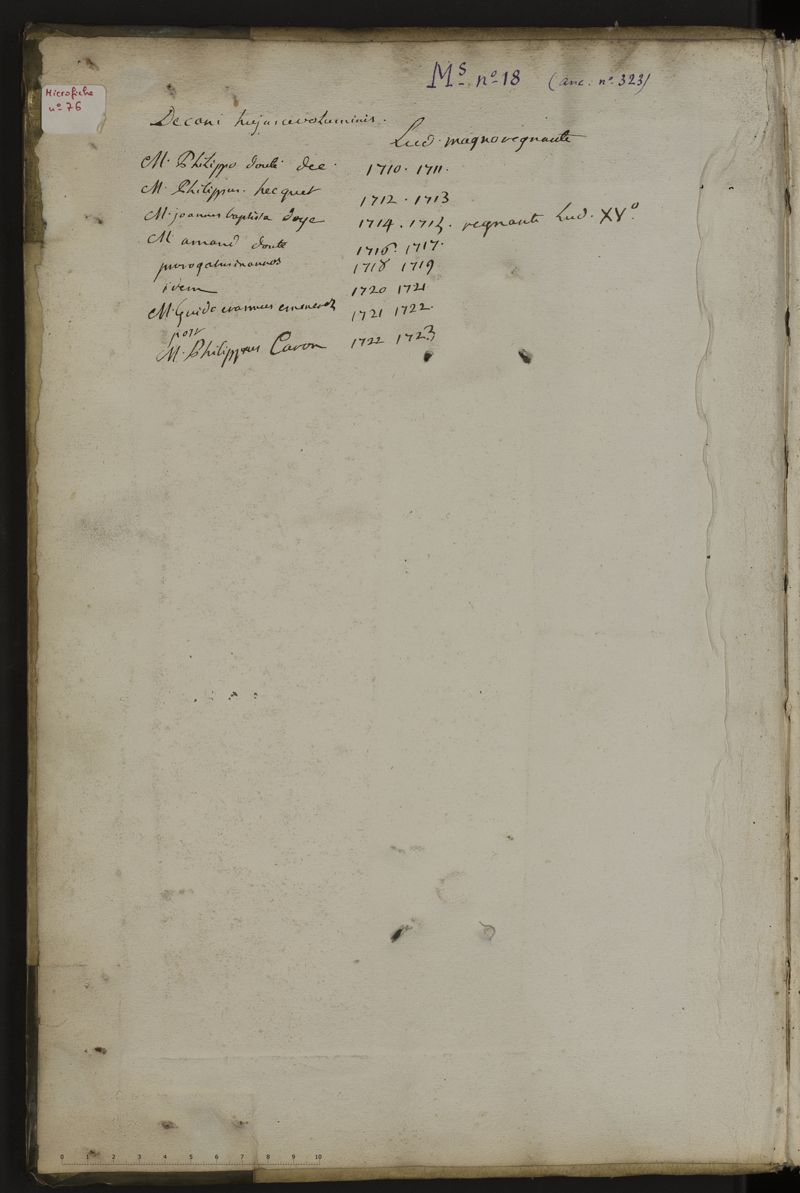 Microfiche
nº 76
Ms. nº 18 (anc. nº 323)
Decani hujusce voluminis.
Lud. magno regnante
M. Philippo douté dec. 1710. 1711.
M. Philippus. hecquet 1712. 1713
M. joannes baptista doye 1714. 1715. regnante Lud. XVº.
M amand douté 1716. 1717.
prorogatus in annos 1718 1719
idem 1720 1721
M. Guido erasmus 1721 1722.
post
M. Philippus Caron 1722 1723
0 1 2 3 4 5 6 7 8 9 10